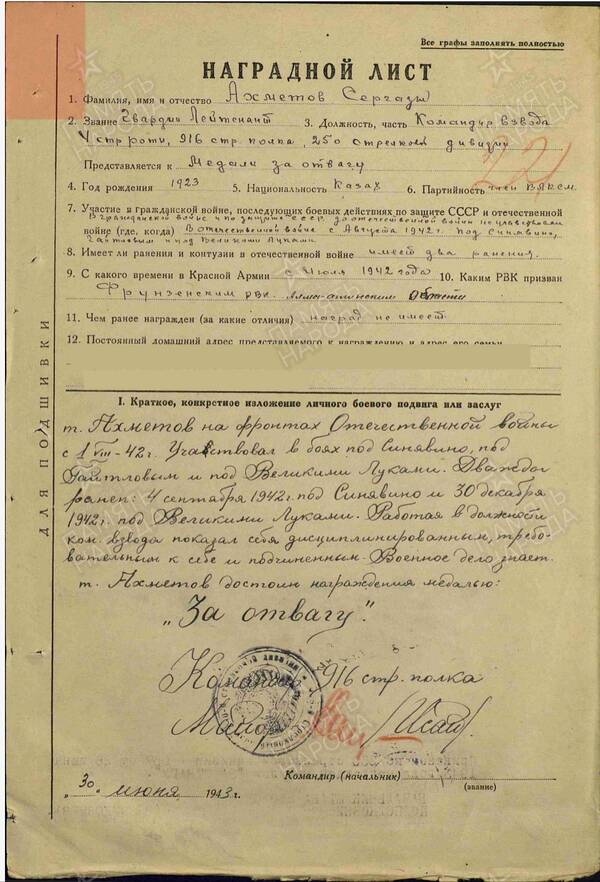 Все графы заполнять полностью
НАГРАДНОЙ ЛИСТ
1. Фамилия, имя и отчество Ахметов Сергазы
2. Звание Гвардии Лейтенант 3. Должность, часть Командир взвода
4 стр роты, 916 стр. полка, 250 стрелков. дивизии
Представляется к Медали за отвагу
4. Год рождения 1923 5. Национальность Казах 6. Партийность член ВЛКСМ.
7. Участие в гражданской войне, последующих боевых действиях по защите СССР и отечественной
В гражданской войне и по защите СССР до отечественной войны не участвовал
войне (где, когда) В отечественной войне с Августа 1942 г. под Синявино,
Гайтловым и под Великими Луками.
8. Имеет ли ранения и контузии в отечественной войне имеет два ранения.
9. С какого времени в Красной Армии с июля 1942 года 10. Каким РВК призван
Фрунзенским РВК. Алма-атинским области
11. Чем ранее награжден (за какие отличия) наград не имеет
12. Постоянный домашний адрес представляемого к награждению и адрес его семьи
ДЛЯ ПОДШИВКИ
I. Краткое, конкретное изложение личного боевого подвига или заслуг
т. Ахметов на фронтах Отечественной войны
с 1 VIII - 42 г. Участвовал в боях под Синявино, под
Гайтловым и под Великими Луками. Дважды
ранен: 4 сентября 1942 г. под Синявино и 30 декабря
1942 г. под Великими Луками. Работая в должности
ком. взвода показал себя дисциплинированным, требо-
вательным к себе и подчиненным. Военное дело знает.
т. Ахметов достоин награждения медалью:
„За отвагу".
Командир 916 стр. полка
Майор /Исай/
Командир (начальник)
(звание)
„30" июня 1943 г.